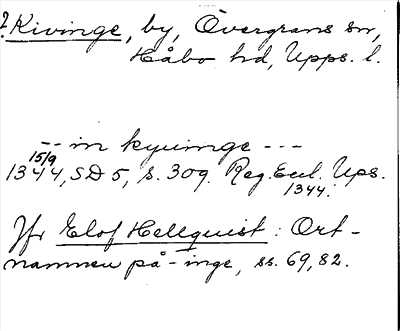 ? Kivinge, by, Övergrans sn,
Håbo hd, Upps. l.
-- in kyuimge ---
15/9
1344, SD 5, s. 309. Reg. Eccl. Ups.
1344.
Jfr Elof Hellquist: Ort-
namnen på -inge, ss. 69, 82.